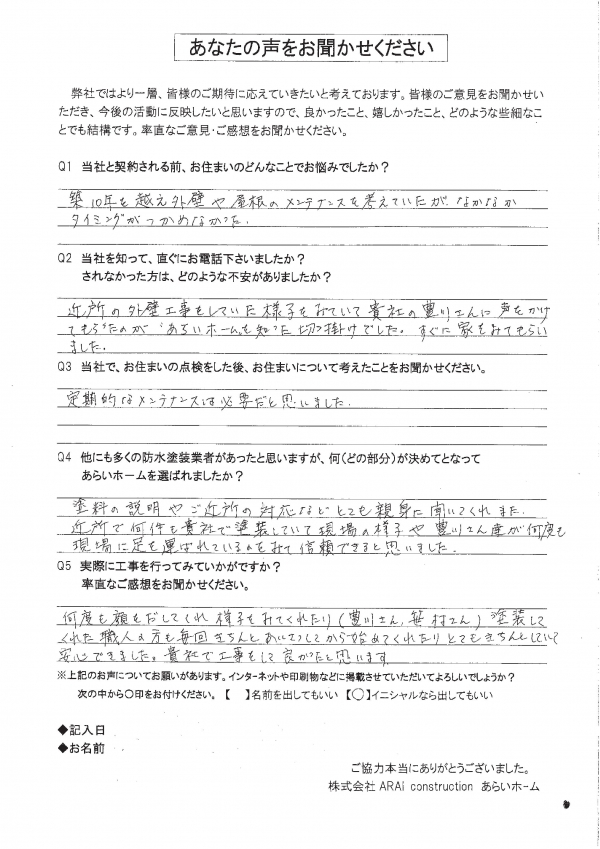 あなたの声をお聞かせください
弊社ではより一層、皆様のご期待に応えていきたいと考えております。皆様のご意見をお聞かせい
ただき、今後の活動に反映したいと思いますので、良かったこと、嬉しかったこと、どのような些細なこ
とでも結構です。率直なご意見・ご感想をお聞かせください。
Q1 当社と契約される前、お住まいのどんなことでお悩みでしたか?
築10年を越え外壁や屋根のメンテナンスを考えていたが、なかなか
タイミングがつかめなかった.
Q2 当社を知って、直ぐにお電話下さいましたか?
されなかった方は、どのような不安がありましたか?
近所の外壁工事をしていた様子をみていて貴社の豊川さんに声をかけ
てもらったのがあらいホームを知った切っ掛けでした。すぐに家をみてもらい
ました.
Q3 当社で、お住まいの点検をした後、お住まいについて考えたことをお聞かせください。
定期的なメンテナンスは必要だと思いました.
Q4 他にも多くの防水塗装業者があったと思いますが、何(どの部分)が決めてとなって
あらいホームを選ばれましたか?
塗料の説明やご近所の対応などとても親身に聞いてくれまた.
近所で何件も貴社で塗装していて現場の様子や豊川さん達が何度も
現場に足を運ばれているのをみて信頼できると思いました.
Q5 実際に工事を行ってみていかがですか?
率直なご感想をお聞かせください。
何度も顔をだしてくれ様子をみてくれたり(豊川さん,笹村さん)塗装して
くれた職人の方も毎回きちんとあいさつしてから始めてくれたりとてもきちんとしていて
安心できました。貴社で工事をして良かったと思います
※上記のお声についてお願いがあります。インターネットや印刷物などに掲載させていただいてよろしいでしょうか?
次の中から〇印をお付けください。【 】名前を出してもいい 【〇】イニシャルなら出してもいい
◆記入日
◆お名前
ご協力本当にありがとうございました。
株式会社 ARAi construction あらいホーム